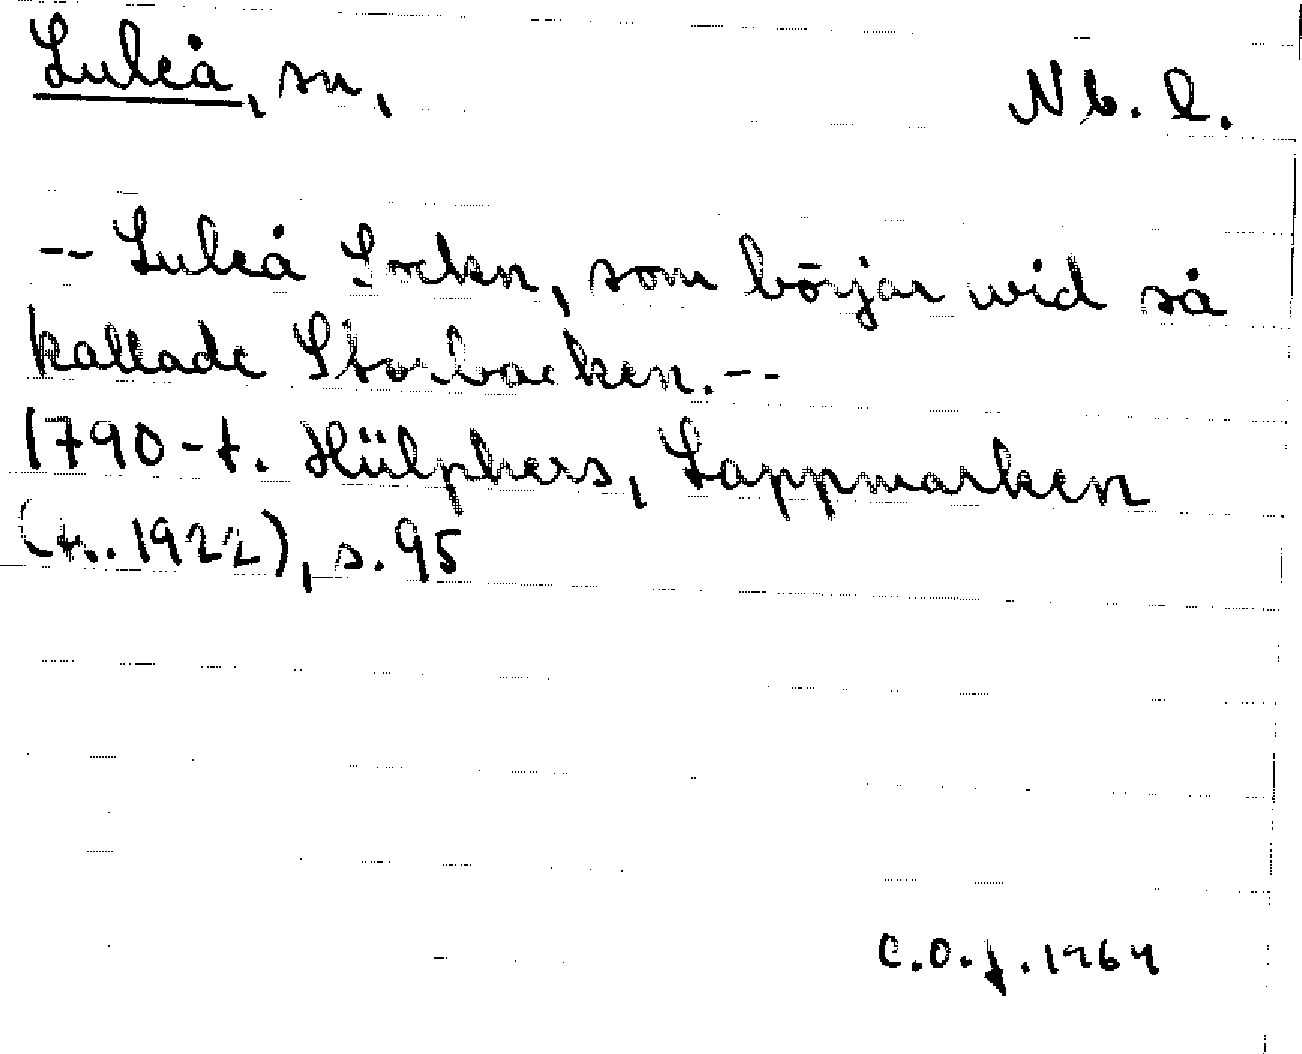 Luleå, sn,
Nb. l.
-- Luleå Sockn, som börjar wid så
kallade Storbacken. --
1790-t. Hülphers, Lappmarken
(tr. 1922), s. 95
C.O.J. 1964